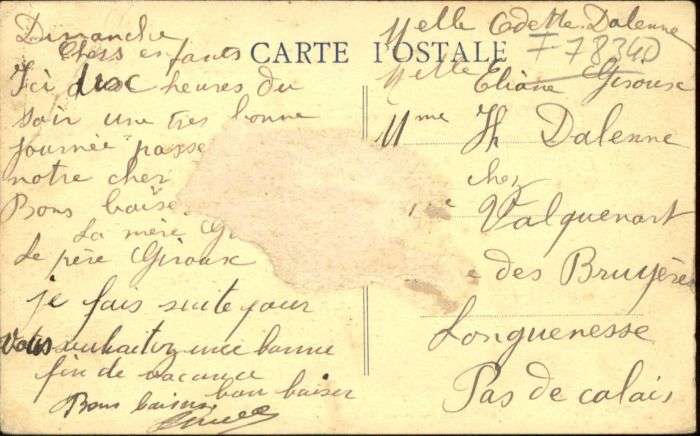 Dimanche
Chers enfants
CARTE POSTALE
Ici deux heures du
soir une tres bonne
journée passe
notre cher
Bons baise
La mère Gi
Le père Giroux
je fais suite pour
vous souhaitez une bonne
fin de vacance
bon baiser
Bons baisers
Melle Odette Dalenne
F 78340
Melle Eliane Giroux
Mme Th Dalenne
chez
Valquenart
des Bruyères
Longuenesse
Pas de calais